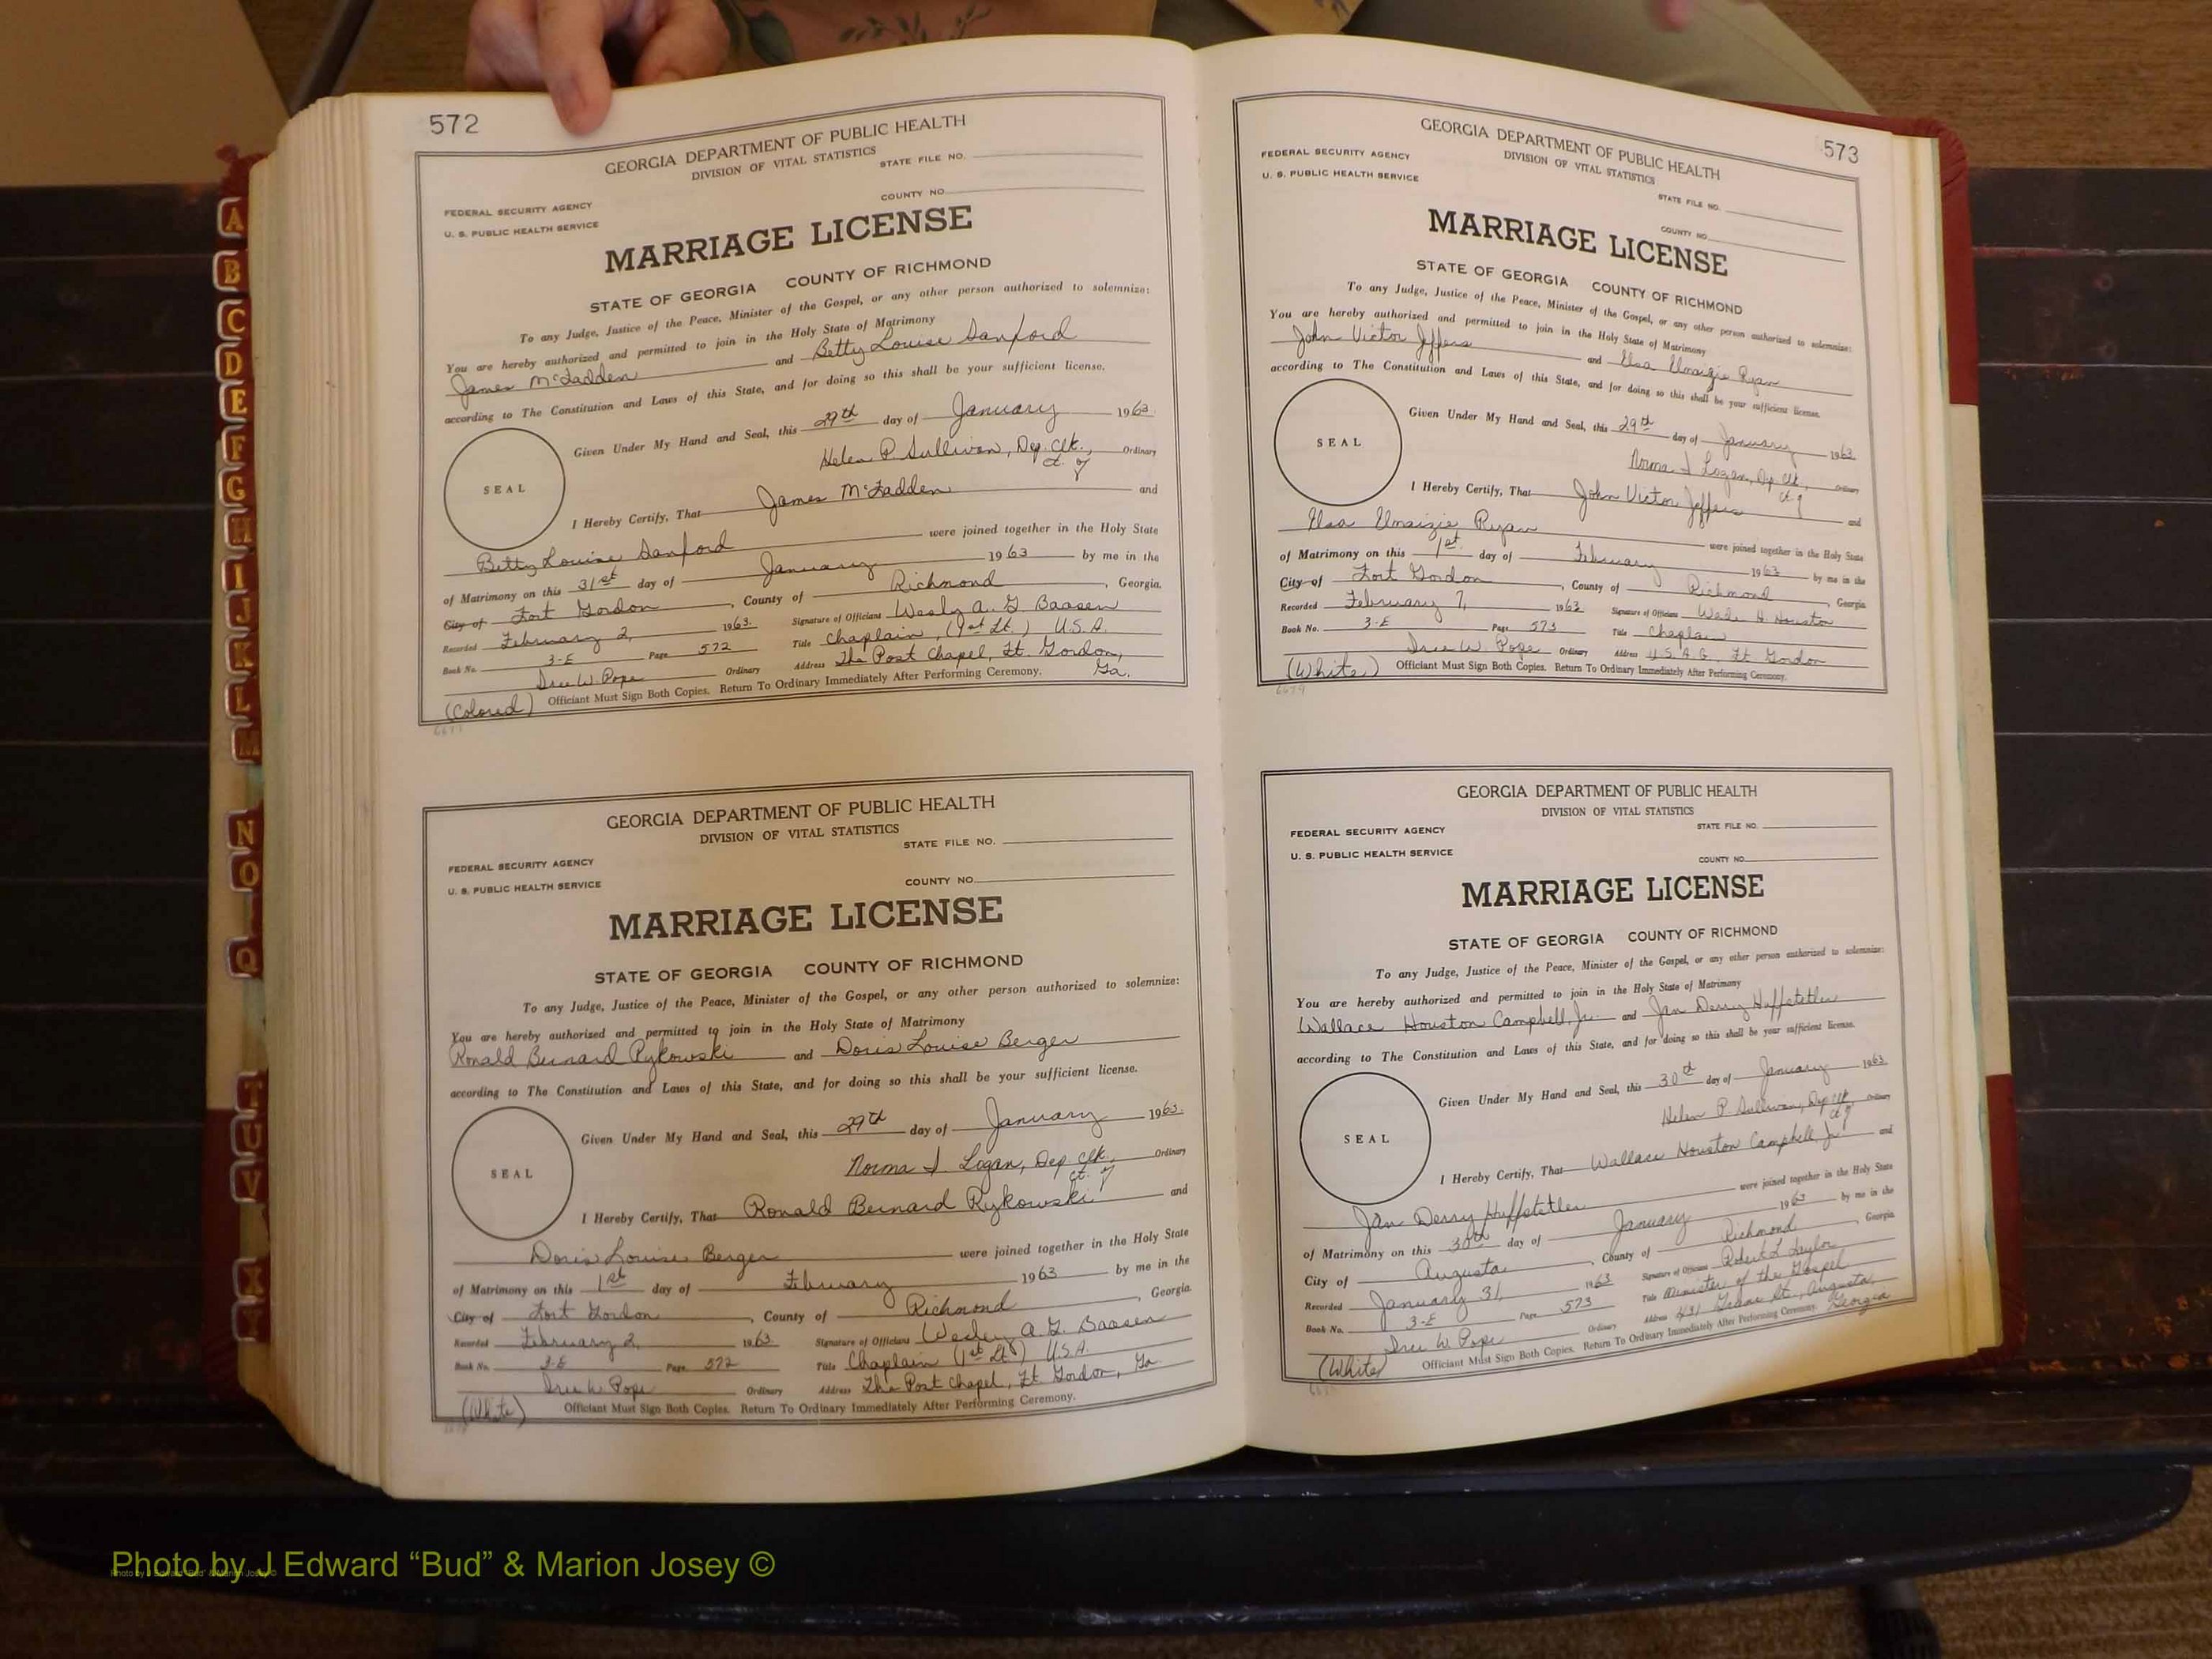 572
GEORGIA DEPARTMENT OF PUBLIC HEALTH
DIVISION OF VITAL STATISTICS
STATE FILE NO.
COUNTY NO.
FEDERAL SECURITY AGENCY
U. S. PUBLIC HEALTH SERVICE
MARRIAGE LICENSE
STATE OF GEORGIA COUNTY OF RICHMOND
To any Judge, Justice of the Peace, Minister of the Gospel, or any other person authorized to solemnize:
You are hereby authorized and permitted to join in the Holy State of Matrimony
James McFadden and Betty Louise Sanford
according to The Constitution and Laws of this State, and for doing so this shall be your sufficient license.
Given Under My Hand and Seal, this 29th day of January 1963.
Helen P. Sullivan, Dep. Clk., Ordinary
ct. of
SEAL
I Hereby Certify, That James McFadden and
Betty Louise Sanford were joined together in the Holy State
of Matrimony on this 31st day of January 1963 by me in the
City of Fort Gordon, County of Richmond, Georgia.
Recorded February 2, 1963. Signature of Officiant Wesly A. G. Baasen
Book No. 3-E Page 572 Title Chaplain, (1st Lt.) U.S.A.
Drew W. Pope Ordinary Address The Post Chapel, Ft. Gordon, Ga.
(Colored) Officiant Must Sign Both Copies. Return To Ordinary Immediately After Performing Ceremony.
GEORGIA DEPARTMENT OF PUBLIC HEALTH
DIVISION OF VITAL STATISTICS
STATE FILE NO.
FEDERAL SECURITY AGENCY
U. S. PUBLIC HEALTH SERVICE
COUNTY NO.
MARRIAGE LICENSE
STATE OF GEORGIA COUNTY OF RICHMOND
To any Judge, Justice of the Peace, Minister of the Gospel, or any other person authorized to solemnize:
You are hereby authorized and permitted to join in the Holy State of Matrimony
Ronald Bernard Rykowski and Doris Louise Berger
according to The Constitution and Laws of this State, and for doing so this shall be your sufficient license.
Given Under My Hand and Seal, this 29th day of January 1963.
Norma I. Logan, Dep. Clk., Ordinary
ct. of
SEAL
I Hereby Certify, That Ronald Bernard Rykowski and
Doris Louise Berger were joined together in the Holy State
of Matrimony on this 1st day of February 1963 by me in the
City of Fort Gordon, County of Richmond, Georgia.
Recorded February 2, 1963. Signature of Officiant Wesley A. G. Baasen
Book No. 3-E Page 572 Title Chaplain (1st Lt.) U.S.A.
Drew W. Pope Ordinary Address The Post Chapel, Ft. Gordon, Ga
(White) Officiant Must Sign Both Copies. Return To Ordinary Immediately After Performing Ceremony.
573
GEORGIA DEPARTMENT OF PUBLIC HEALTH
DIVISION OF VITAL STATISTICS
FEDERAL SECURITY AGENCY
U. S. PUBLIC HEALTH SERVICE
STATE FILE NO.
COUNTY NO.
MARRIAGE LICENSE
STATE OF GEORGIA COUNTY OF RICHMOND
To any Judge, Justice of the Peace, Minister of the Gospel, or any other person authorized to solemnize:
You are hereby authorized and permitted to join in the Holy State of Matrimony
John Victor Jeffers and Elsa Ryan
according to The Constitution and Laws of this State, and for doing so this shall be your sufficient license.
Given Under My Hand and Seal, this 29th day of January 1963.
Norma I Logan, Dep. Clk., Ordinary
ct. of
SEAL
I Hereby Certify, That John Victor Jeffers and
Elsa Ryan were joined together in the Holy State
of Matrimony on this 1st. day of February 1963 by me in the
City of Fort Gordon, County of Richmond, Georgia
Recorded February 7, 1963 Signature of Officiant Wade H. Houston
Book No. 3-E Page 573 Title Chaplain
Drew W. Pope Ordinary Address U.S.A.G. Ft Gordon
(White) Officiant Must Sign Both Copies. Return To Ordinary Immediately After Performing Ceremony.
6679
GEORGIA DEPARTMENT OF PUBLIC HEALTH
DIVISION OF VITAL STATISTICS
STATE FILE NO.
FEDERAL SECURITY AGENCY
U. S. PUBLIC HEALTH SERVICE
COUNTY NO.
MARRIAGE LICENSE
STATE OF GEORGIA COUNTY OF RICHMOND
To any Judge, Justice of the Peace, Minister of the Gospel, or any other person authorized to solemnize:
You are hereby authorized and permitted to join in the Holy State of Matrimony
Wallace Houston Campbell, Jr. and Jan Derry Huffstetler
according to The Constitution and Laws of this State, and for doing so this shall be your sufficient license.
Given Under My Hand and Seal, this 30th day of January 1963
Helen P. Sullivan, Dep Clk, Ordinary
ct. of
SEAL
I Hereby Certify, That Wallace Houston Campbell, Jr and
Jan Derry Huffstetler were joined together in the Holy State
of Matrimony on this 30th day of January 1963 by me in the
City of Augusta, County of Richmond, Georgia
Recorded January 31, 1963 Signature of Officiant Robert L Taylor
Book No. 3-E Page 573 Title Minister of the Gospel
Drew W. Pope Ordinary Address St., Augusta, Georgia
(White) Officiant Must Sign Both Copies. Return To Ordinary Immediately After Performing Ceremony.
A
B
C
D
E
F
G
H
I
J
K
L
M
N
O
Q
T
U
V
Photo by J Edward “Bud” & Marion Josey ©
Photo by J Edward “Bud” & Marion Josey ©